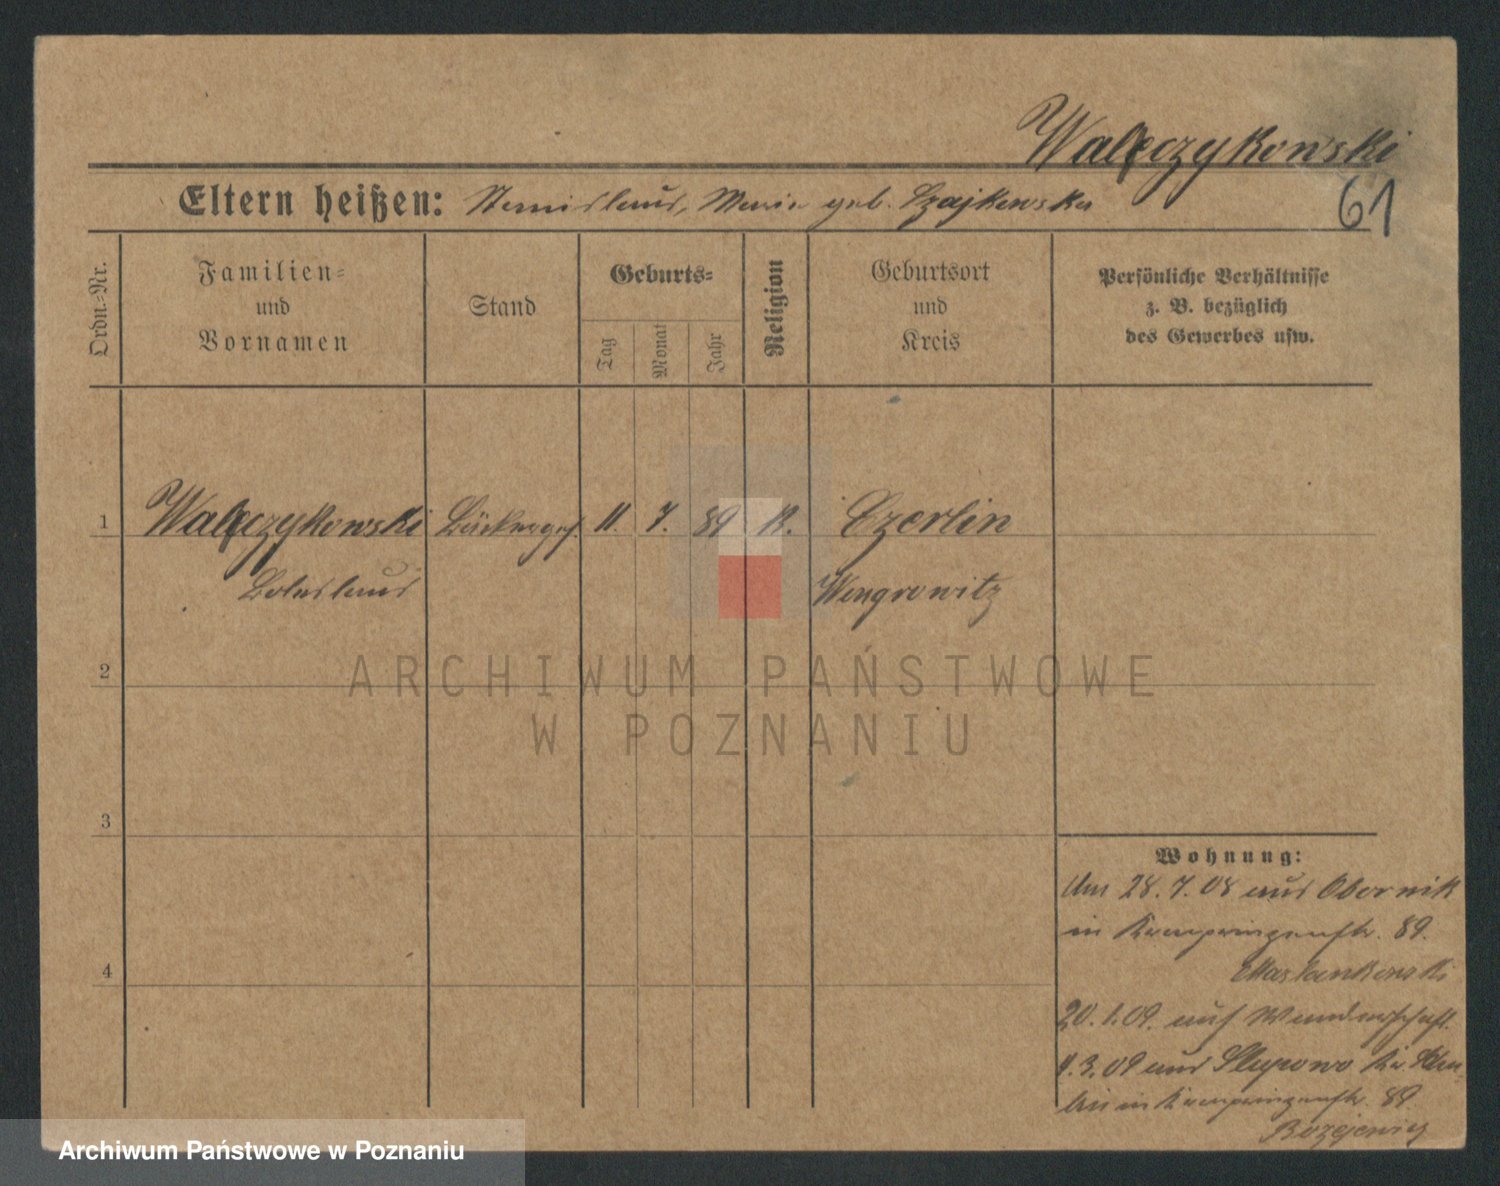 Walczykowski
61
Eltern heißen: Stanislaus, Maria geb. Czajkowska
Ordn.=Nr.
Familien=
und
Vornamen
Stand
Geburts=
Tag
Monat
Jahr
Religion
Geburtsort
und
Kreis
Persönliche Verhältnisse
z. B. bezüglich
des Gewerbes usw.
1 Walczykowski Bäckerges. 11. 7. 89 K. Czerlin
Boleslaus Wongrowitz
2
3
4
Wohnung:
Am 28.7.08 aus Obornik
in 89.
Maslankowski
20.1.09. auf Wanderschaft
.3.09 aus Slupowo Kr.
in 89
ARCHIWUM PAŃSTWOWE
W POZNANIU
Archiwum Państwowe w Poznaniu